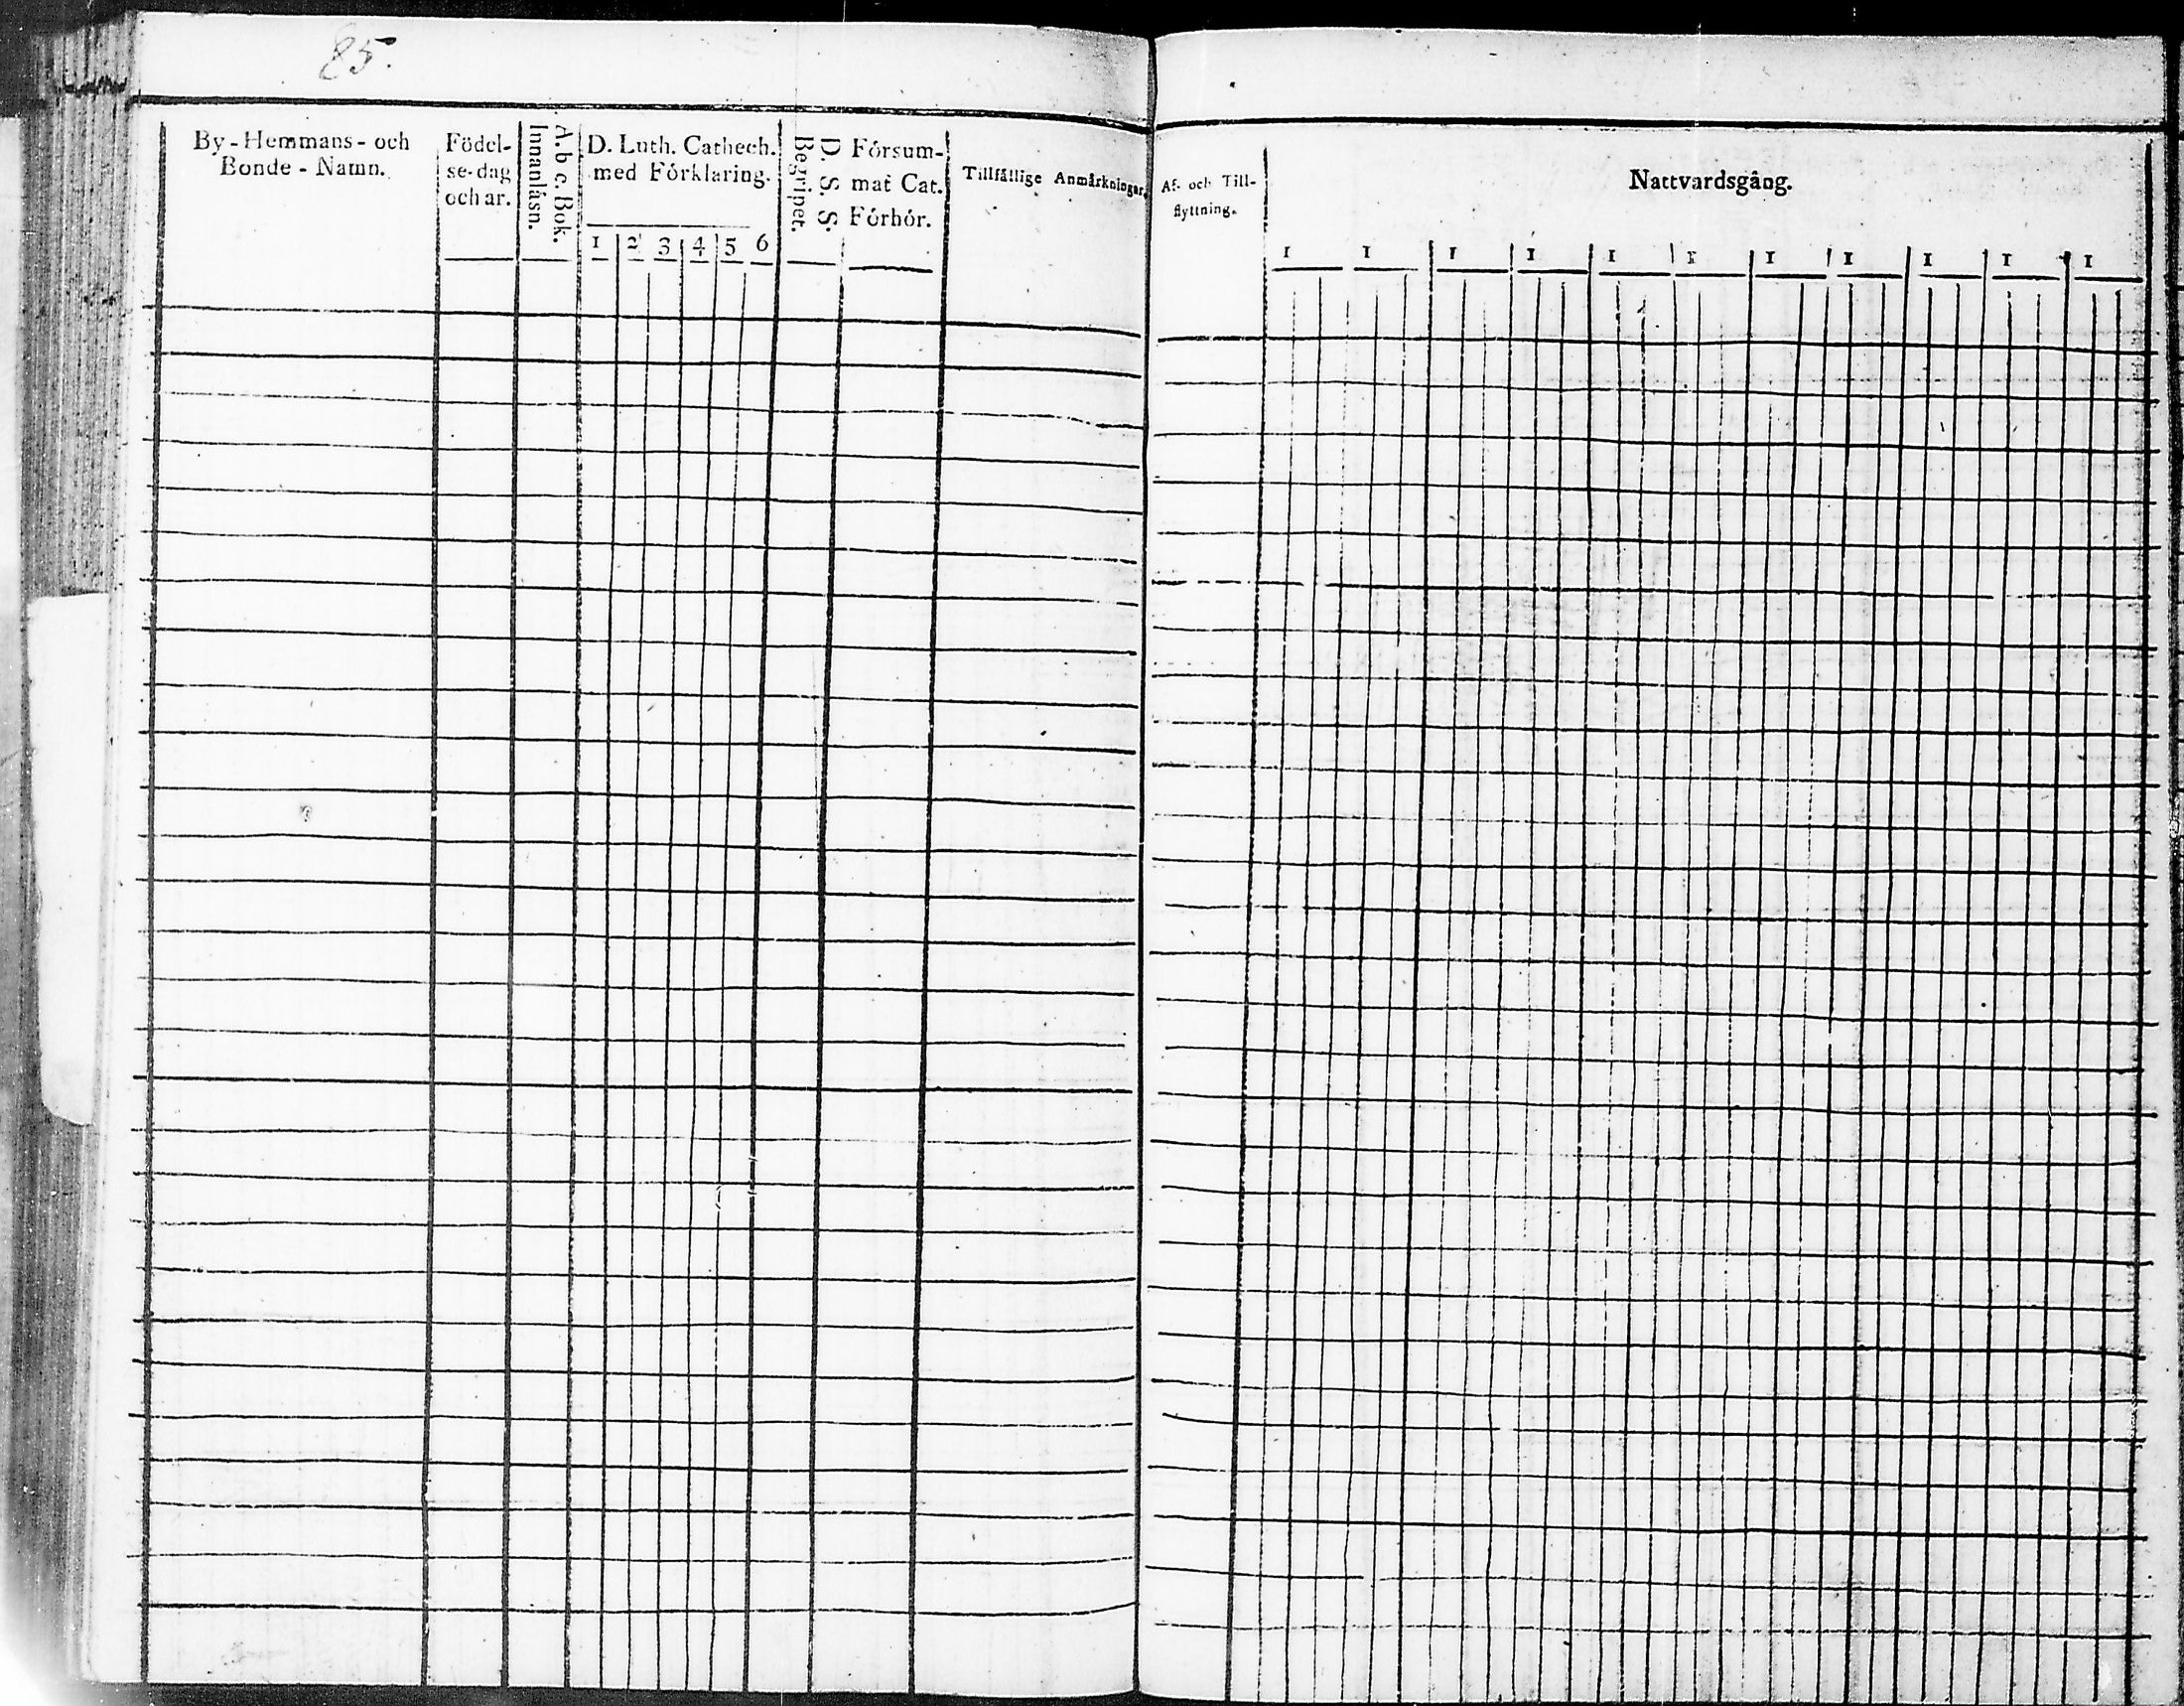 85.
By-Hemmans- och
Bonde-Namn.
Födel-
se-dag
och ar.
A. b c. Bok.
Innanläsn.
D. Luth. Cathech.
med Förklaring.
1 2 3 4 5 6
D. S. S.
Begripet.
Försum-
mat Cat.
Förhör.
Tillfällige Anmärkningar.
Af- och Till-
flyttning.
Nattvardsgång.
1 1 1 1 1 1 1 1 1 1 1